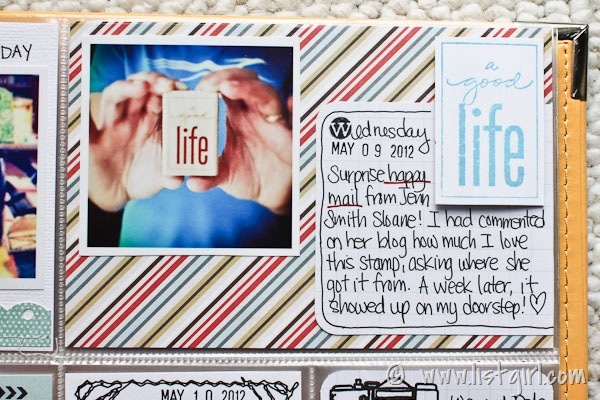 DAY
a
good
life
a
good
life
Wednesday
MAY 09 2012
Surprise happy
mail from Jenn
Smith Sloane! I had commented
on her blog how much I love
this stamp, asking where she
got it from. A week later, it
showed up on my doorstep!
MAY 10 2012
© www.listgirl.com